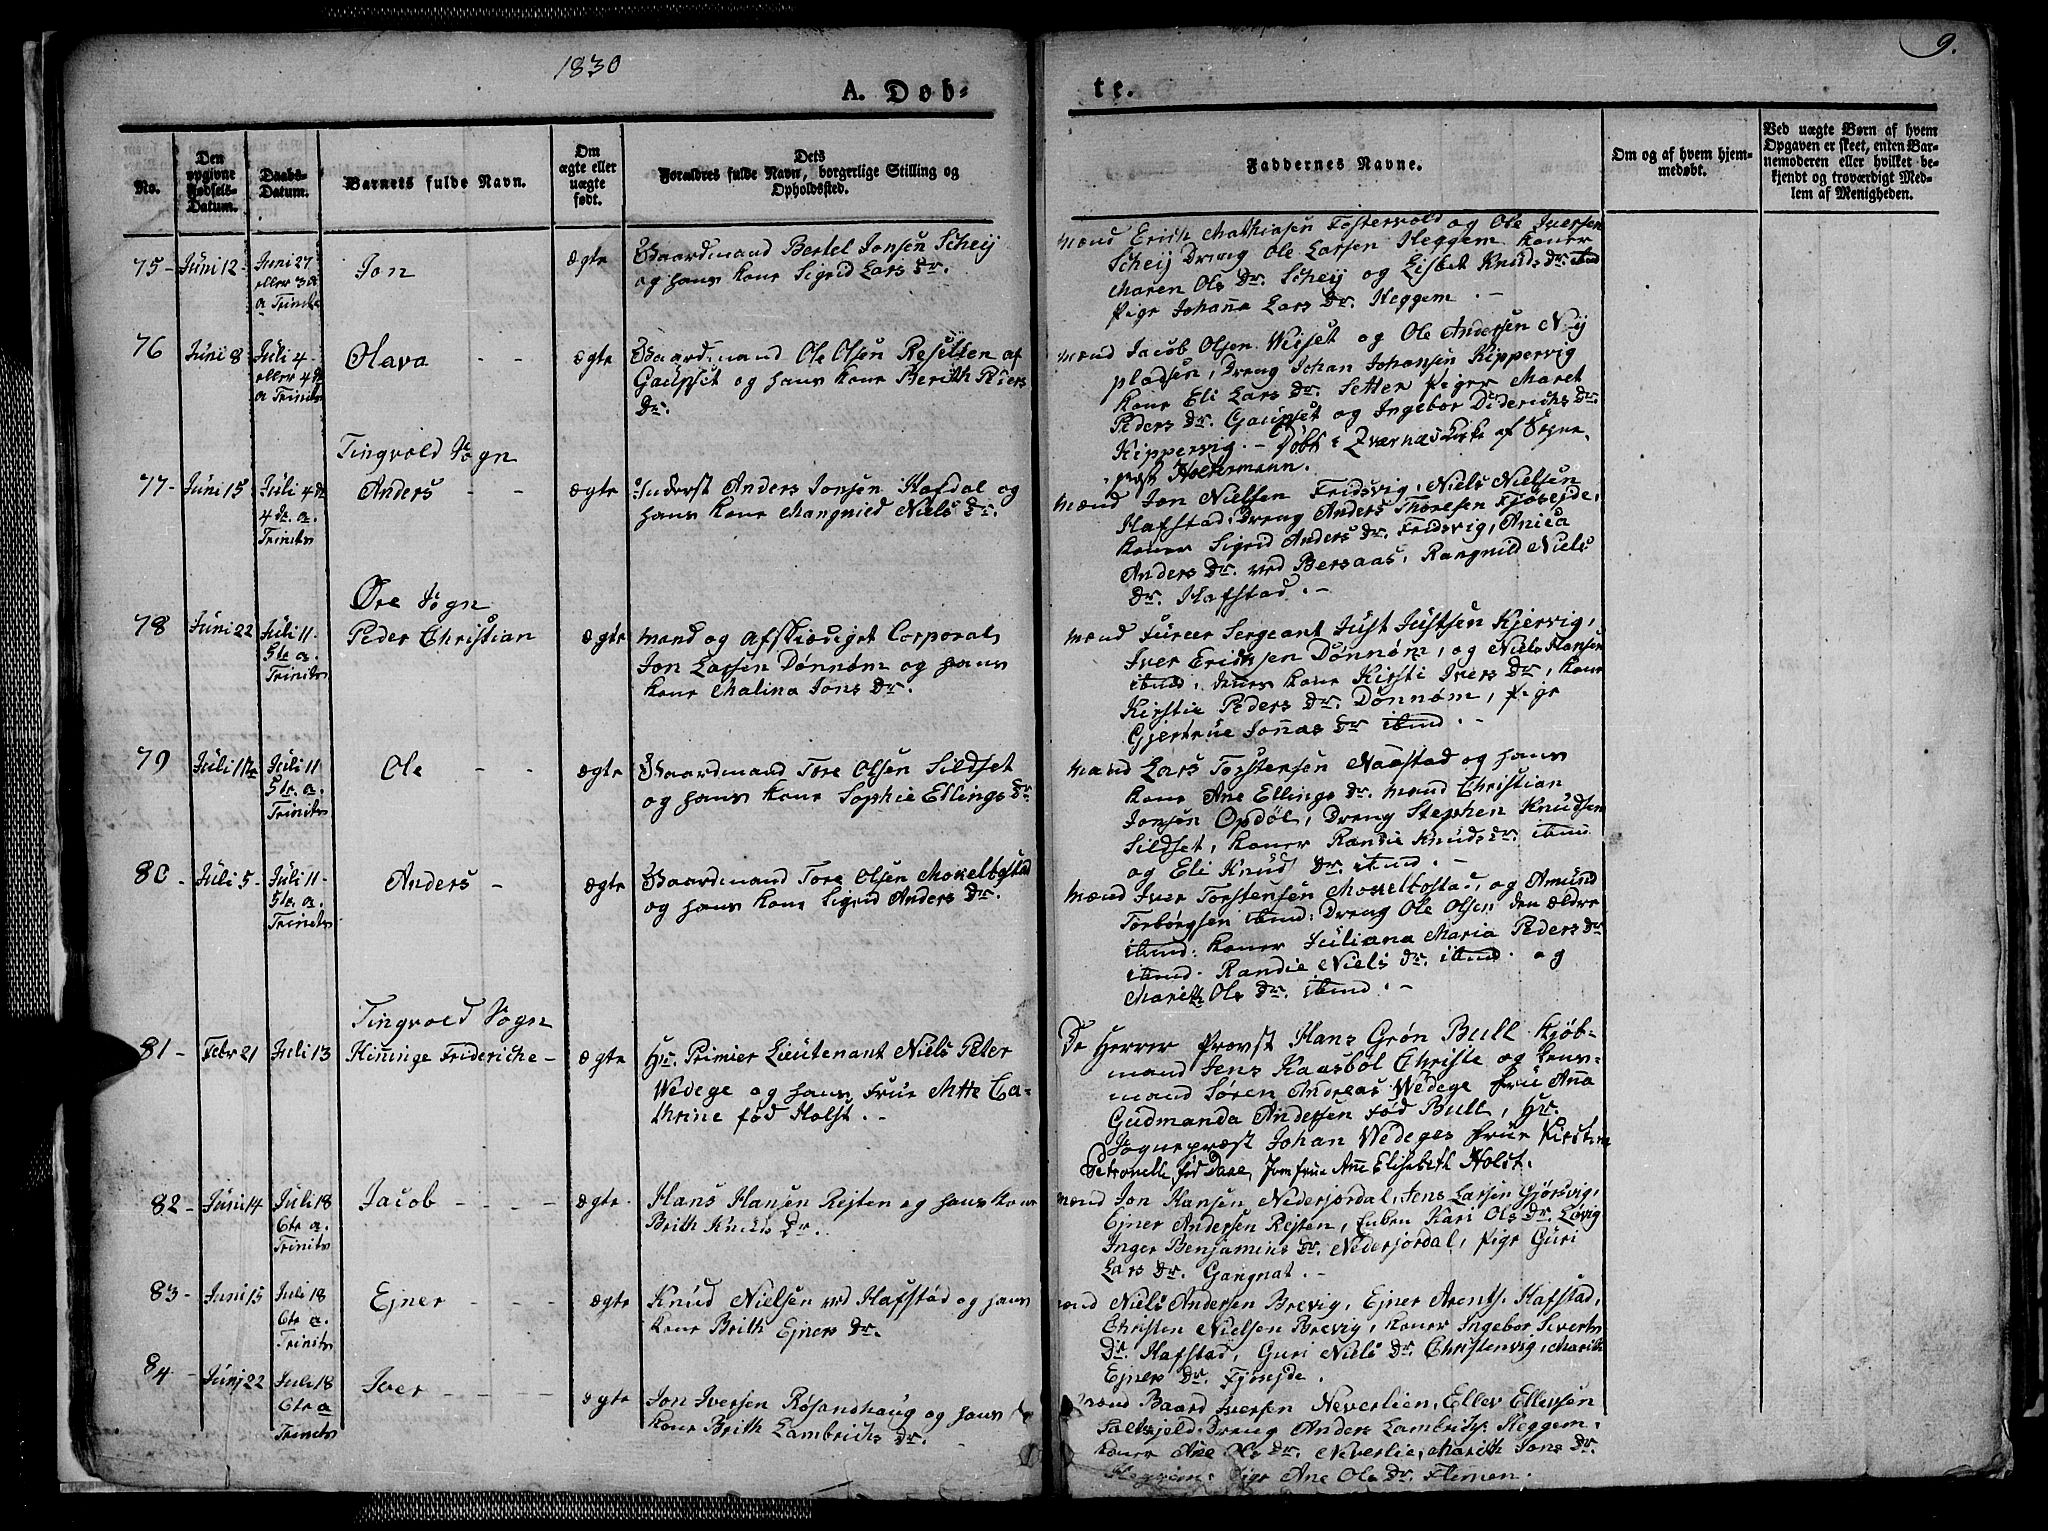 1830
9.
A. Døb-
te.
No.
Den
opgivne
Fødsels-
Datum.
Daabs-
Datum.
Barnets fulde Navn.
Om
ægte eller
uægte
født.
Dets
Forældres fulde Navn, borgerlige Stilling og
Opholdssted.
Faddernes Navne.
Om og af hvem hjem-
medøbt.
Ved uægte Børn af hvem
Opgaven er skeet, enten Bar-
nemoderen eller hvilket be-
kjendt og troværdigt Med-
lem af Menigheden.
75 -
Juni 12 -
Juni 27
eller 3 d
a Trinit
Jon
ægte
Gaardmand Bertel Jonsen Scheij
og hans Kone Sigrid Lars Dr.
Mænd Erich Mathiasen Fostervold og Ole Iversen
Scheij Dreng Ole Larsen Heggem Koner
Maren Ols Dr. Scheij og Lisbet Knuds Dr. ibid
Pige Johanne Lars Dr. Heggem. -
76
Juni 8
Juli 4 -
eller 4de
a Trinit
Olava - -
ægte
Gaardmand Ole Olsen Resellen af
Gaupset og hans Kone Berith Peders
Dr.
Mænd Jacob Olsen Weset og Ole Andersen Nÿ
pladsen, Dreng Johan Johansen Kippervig
Kone Eli Lars Dr. Setter Piger Maret
Peders Dr. Gaupset og Ingebor Diderichs Dr.
Kippervig. - Døbt i Qværnæs Kirke af Sogne
præst
Tingvold Sogn
77 -
Juni 15
Juli 4de
4de. a.
Trinits
Anders - -
ægte
Inderst Anders Jonsen Hafdal og
hans Kone Mangnied Niels Dr.
Mænd Jon Nielsen Fridsvig, Niels Nielsen
Hafstad, Dreng Anders Thoresen Fjøsejde,
Koner Sigrid Anders Dr. Fridsvig, Anica
Anders Dr. ved Bersaas, Rangnild Niels
Dr. Hafstad. -
Øre Sogn
78
Juni 22
Juli 11 -
5te a
Trinits
Peder Christian
ægte
Mand og Afskiediget Corporal
Jon Larsen Dønnøm og hans
Kone Malina Jons Dr.
Mænd Fureer Sergeant Just Justsen Kjervig,
Iver Erichsen Dønnøm, og Niels Hansen
ibid, Kone Kirsti Ivers Dr, Kone
Kirstie Peders Dr. Dønnøm, Pige
Gjertrue Jonas Dr ibid. -
79
Juli 1ste
Juli 11
5te. a.
Trinits
Ole - -
ægte
Gaardmand Tore Olsen Sildset
og hans Kone Sophie Ellings Dr.
Mænd Lars Torstensen Naastad og hans
Kone Ane Ellings Dr. Mand Christian
Jonsen Opdøl, Dreng Stephen Knudsen
Sildset, Koner Randie Knuds Dr. ibid
og Eli Knud Dr. ibid. -
80 -
Juli 5 -
Juli 11 -
5te. a.
Trinits
Anders -
ægte
Gaardmand Tore Olsen Mokelbostad
og hans Kone Sigrid Anders Dr.
Mænd Iver Torstensen Mokelbostad, og Amund
Torborgsen ibid: Dreng Ole Olsen den ældre
ibid: Koner Juliana Maria Peders Dr
ibid. Randie Niels Dr. ibid. og
Marith Ols Dr. ibid. -
Tingvold Sogn
81 -
Febr 21
Juli 13
Hininge Frideriche -
ægte
Hr. Primier Lieutenant Niels Peter
Wedege og hans Frue Mette Ca-
thrine fød Holst. -
De Herrer Provst Hans Grøn Bull Kjøb-
mand Jens Kaasbøl Christie og Lens-
mand Søren Andreas Wedege Frue Ana
Gudmanda Andersen fød Bull, Hr.
Sognepræst Johan Wedeges Frue Kirstine
Petronelle fød Daae, Jomfrue Ane Elisabeth Holst.
82 -
Juni 14
Juli 18
6te a.
Trinits
Jacob - - -
ægte
Hans Hansen Rejten og hans Kone
Brith Knuds Dr.
Mænd Jon Hansen Nederjordal, Jens Larsen Gjørsvig,
Ejner Andersen Rejten, Enken Kari Ols Dr. Løvig
Inger Benjamins Dr. Nederjordal, Pige Guri
Lars Dr. Gangnat. -
83 -
Juni 15
Juli 18
6te a.
Trinits
Ejner - - -
ægte
Knud Nielsen ved Hafstad og hans
Kone Brith Ejners Dr.
Mænd Niels Andersen Brevig, Ejner Arents. Hafstad,
Christen Nielsen Brevig, Koner Ingebor Siverts
Dr. Hafstad, Guri Niels Dr. Christenvig, Marith
Ejners Dr. Fjøsejde.
84 -
Junj 22
Juli 18
6te a
Trinits
Iver - - -
ægte
Jon Iversen Røsandhaug og hans
Kone Brith Lambrichs Dr.
Mænd Baard Iversen Neverlien, Ellev Ellevsen
Saltkjeld. Dreng Anders Lambrichs. Heggem.
Kone Ane Ols Dr. Neverlie, Marith Jons Dr.
Heggem. Pige Ane Ols Dr. Flemen.